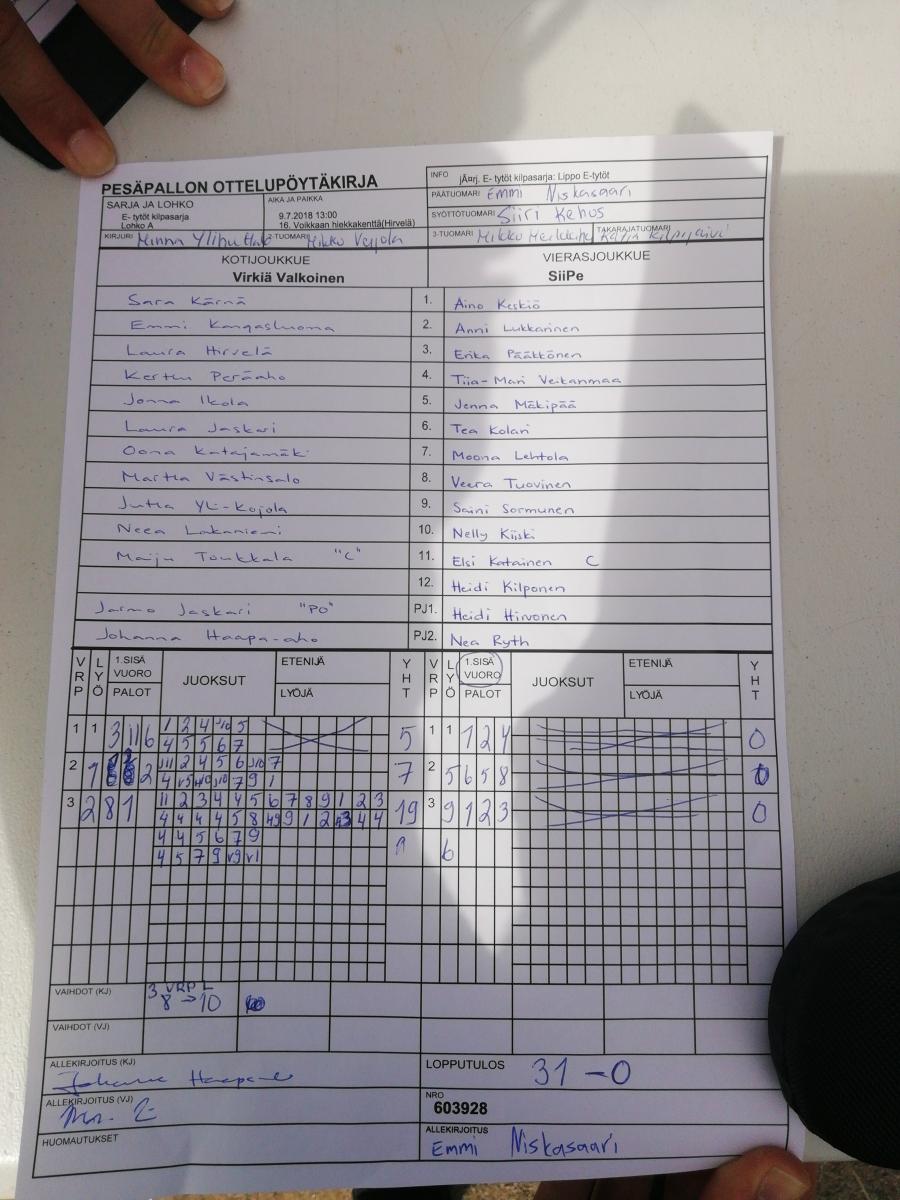 PESÄPALLON OTTELUPÖYTÄKIRJA
INFO jÃ¤rj. E- tytöt kilpasarja: Lippo E-tytöt
PÄÄTUOMARI Emmi Niskasaari
SARJA JA LOHKO
E- tytöt kilpasarja
Lohko A
AIKA JA PAIKKA
9.7.2018 13:00
16. Voikkaan hiekkakenttä(Hirvelä)
SYÖTTÖTUOMARI Siiri Kehus
KIRJURI Minna 2-TUOMARI Mikko 3-TUOMARI Mikko TAKARAJATUOMARI
KOTIJOUKKUE
Virkiä Valkoinen
VIERASJOUKKUE
SiiPe
Sara Kärnä 1. Aino Keskiö
Emmi Kangasluoma 2. Anni Lukkarinen
Laura Hirvelä 3. Erika Pääkkönen
Kerttu Peräaho 4. Tiia-Mari Veikanmaa
Jonna Ikola 5. Jenna Mäkipää
Laura Jaskari 6. Tea Kolari
Oona Katajamäki 7. Moona Lehtola
Martta Västinsalo 8. Veera Tuovinen
Jutta Yli-Kojola 9. Saini Sormunen
Neea Lakaniemi 10. Nelly Kiiski
Maiju Toukkala "C" 11. Elsi Katainen C
12. Heidi Kilponen
Jarmo Jaskari "PO" PJ1. Heidi Hirvonen
Johanna Haapa-aho PJ2. Nea Ryth
VRP LYÖ 1.SISÄ VUORO PALOT JUOKSUT ETENIJÄ LYÖJÄ YHT VRP LYÖ 1.SISÄ VUORO PALOT JUOKSUT ETENIJÄ LYÖJÄ YHT
1 1 3 11 6 1 2 4 5 5 1 1 1 2 4 0
4 5 5 6 7
2 1 2 2 4 5 6 7 7 2 5 6 5 8
4 7 9 1
3 2 8 1 11 2 3 4 4 5 6 7 8 9 1 2 3 19 3 9 1 2 3 0
4 4 4 4 5 8 9 1 2 4 4
4 4 5 6 7 9 6
4 5 7 9 v9 v1
VAIHDOT (KJ) 3 VRP L
8 → 10
VAIHDOT (VJ)
ALLEKIRJOITUS (KJ)
LOPPUTULOS 31 - 0
ALLEKIRJOITUS (VJ)
NRO
603928
HUOMAUTUKSET
ALLEKIRJOITUS
Emmi Niskasaari